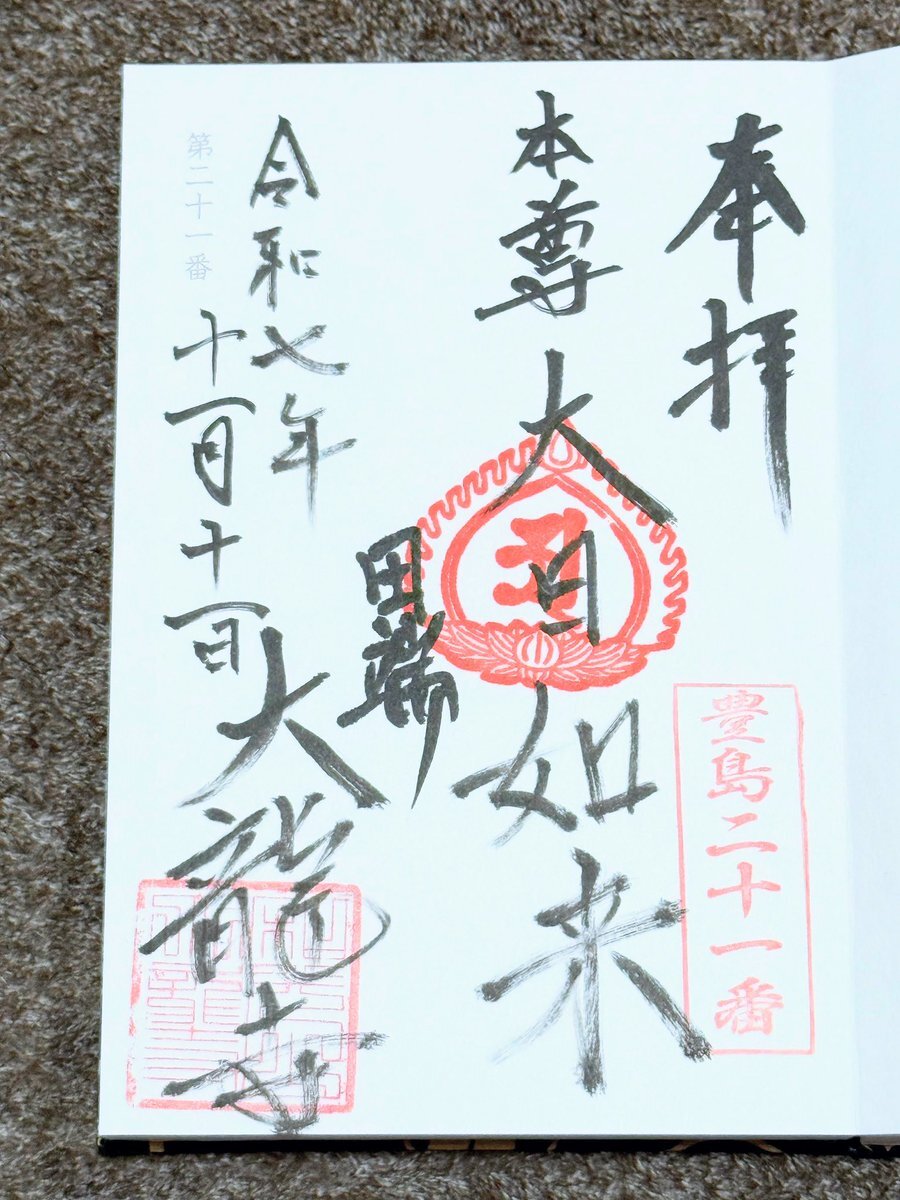 奉拝
豊島二十一番
本尊 大日如来
田端
大龍寺
令和七年
十一月十一日
第二十一番